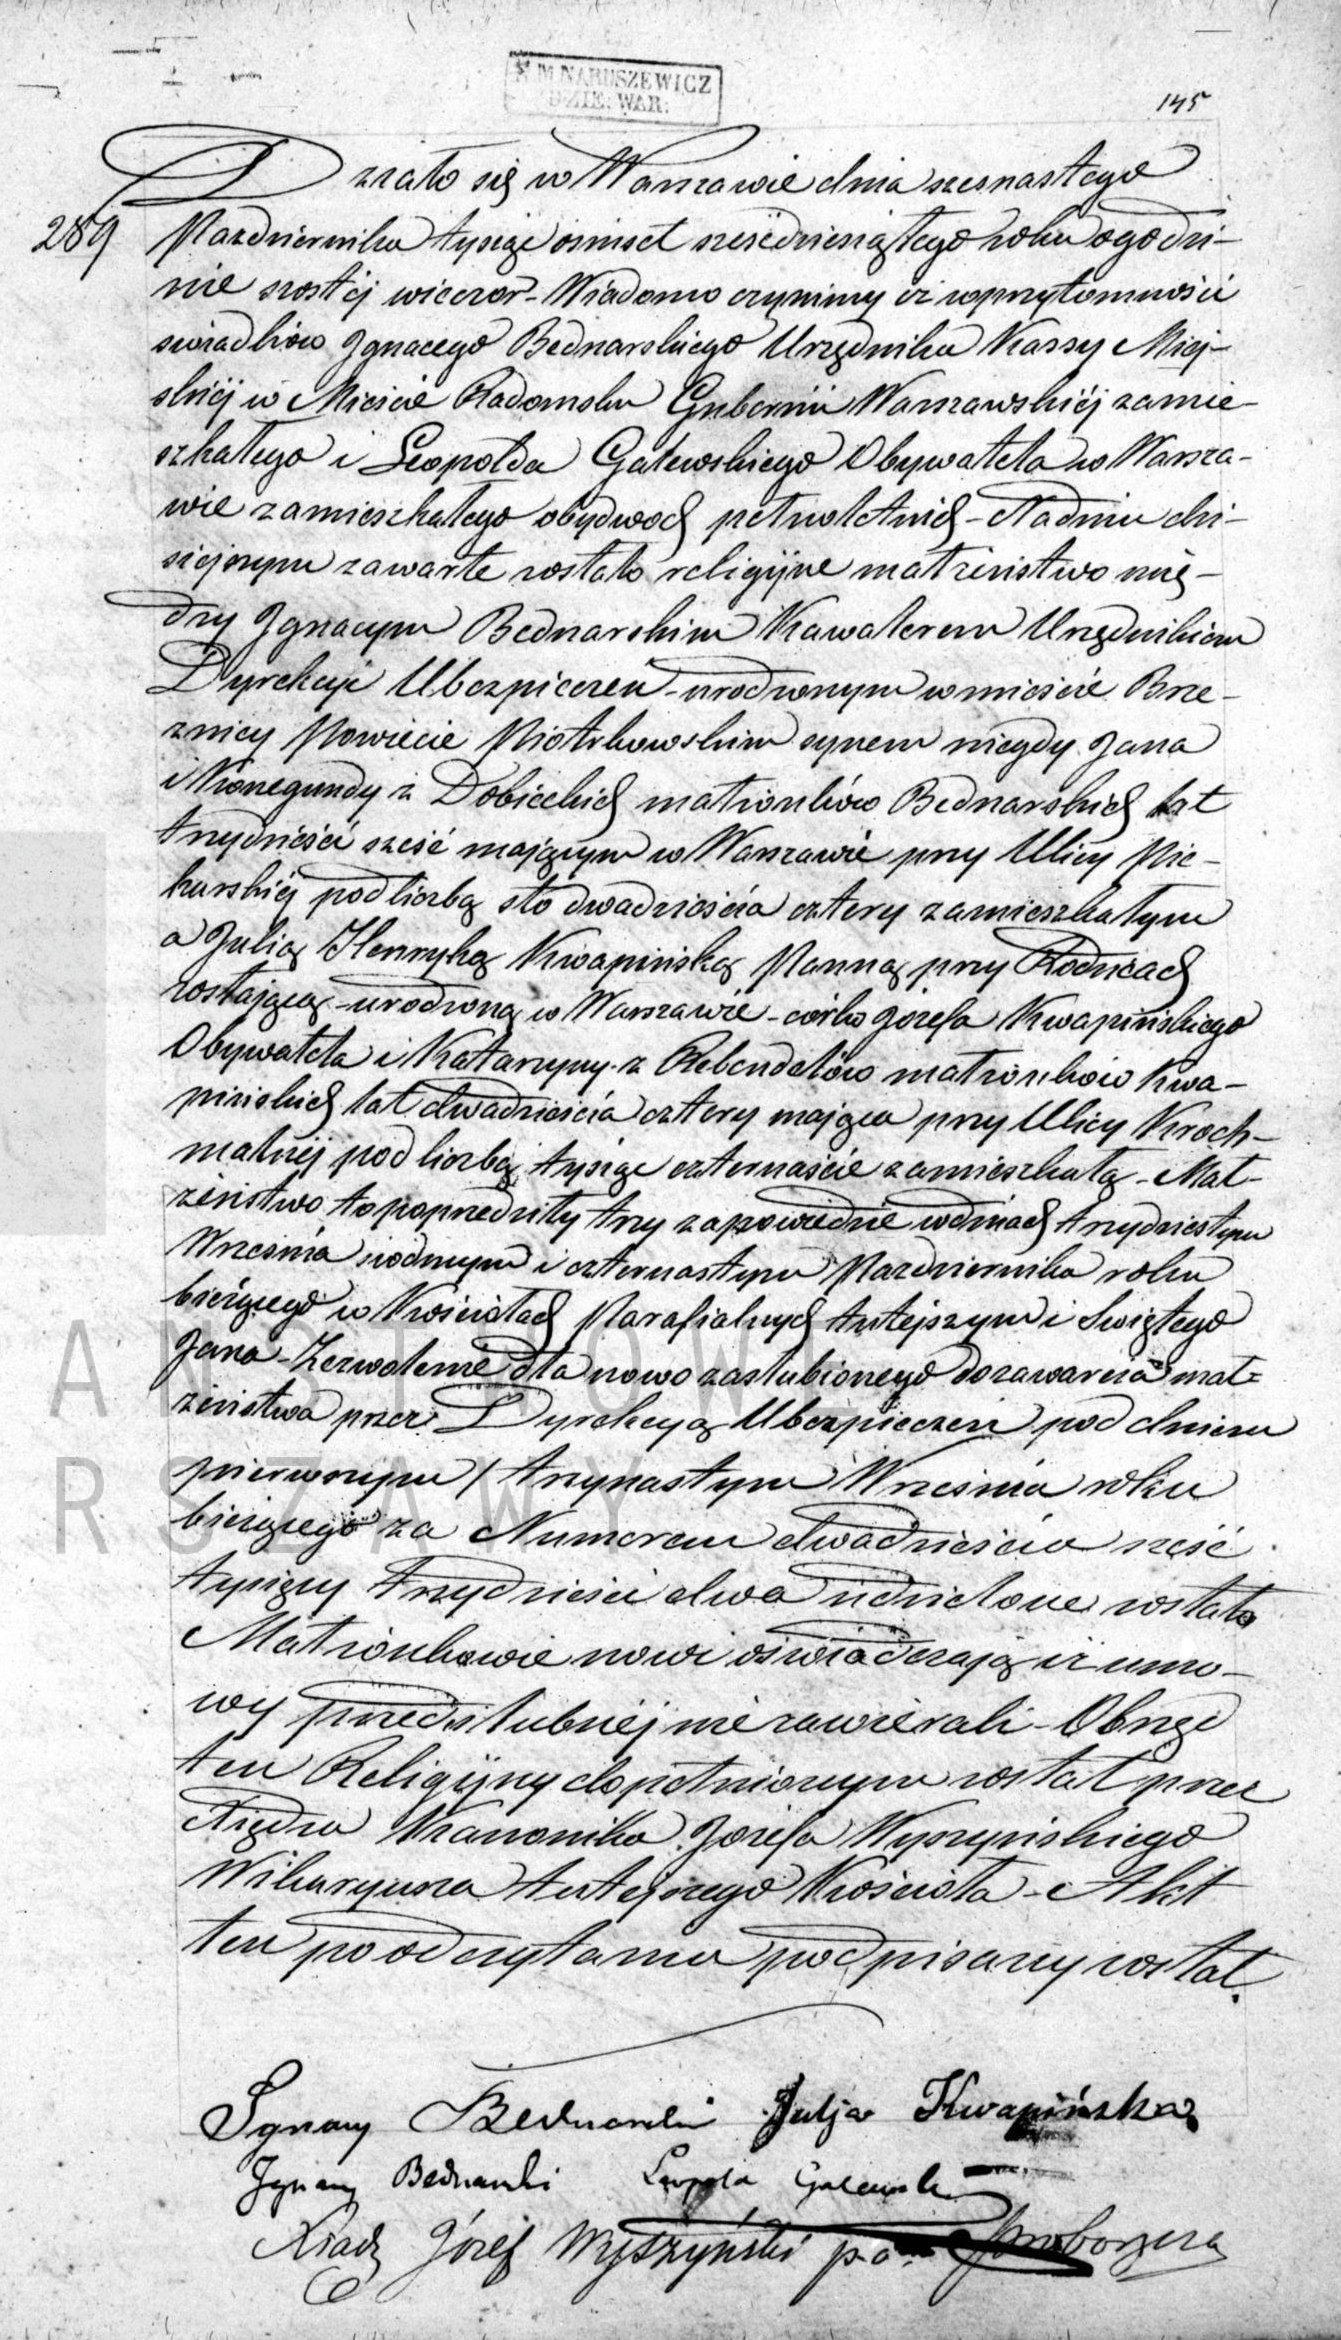 M NARUSZEWICZ
DZIE: WAR:
145
Działo się w Warszawie dnia szesnastego
289
Pazdziernika tysiąc ośmset sześćdziesiątego roku o godzi-
nie szostej wieczor - Wiadomo czynimy iż w przytomności
swiadków Ignacego Bednarskiego Urzędnika Kassy Miej-
skiéj w Mieście Radomsku Gubernii Warszawskiéj zamie-
szkałego i Leopolda Galewskiego Obywatela w Warsza-
wie zamieszkałego obydwoch pełnoletnich - Na dniu dzi-
siejszym zawarte zostało religijne małżeństwo mię-
dzy Ignacym Bednarskim Kawalerem Urzędnikiem
Dyrekcji Ubezpieczeń - urodzonym w mieście Brze-
znicy Powiecie Piotrkowskim synem niegdy Jana
i Kunegundy z Dobieckich małżonków Bednarskich lat
trzydzieści sześć mającym w Warszawie przy Ulicy Pie-
karskiéj pod liczbą sto dwadzieścia cztery zamieszkałym
a Julią Henryką Kwapińską Panną przy Rodzicach
zostającą - urodzoną w Warszawie - córką Józefa Kwapińskiego
Obywatela i Katarzyny z Rebendelów małżonków Kwa-
pińskich lat dwadzieścia cztery mającą przy Ulicy Kroch-
malnéj pod liczbą tysiąc czternaście zamieszkałą - Mał-
żeństwo to poprzedziły trzy zapowiedzie w dniach trzydziestym
Września siódmym i czternastym Pazdziernika roku
bieżącego w Kościołach Parafialnych tutejszym i Swiętego
Jana - Zezwolenie dla nowozaslubionego do zawarcia mał-
żeństwa przez Dyrekcyą Ubezpieczeń pod dniem
pierwszym / trzynastym Września roku
bieżącego za Numerem dwadzieścia sześć
tysięcy trzydzieści dwa udzielone zostało
Małżonkowie nowi oświadczają iż umo-
wy przedślubnéj nie zawierali - Obrzęd
ten Religijny dopełnionym został przez
Xiędza Kanonika Józefa Wyszyńskiego
Wikaryusza tutejszego Kościoła - Akt
ten po odczytaniu podpisany został.
Ignacy Bednarski Julja Kwapińska
Ignacy Bednarski Leopold Galewski
Xiądz Józef Wyszyński p. o. Proboszcza